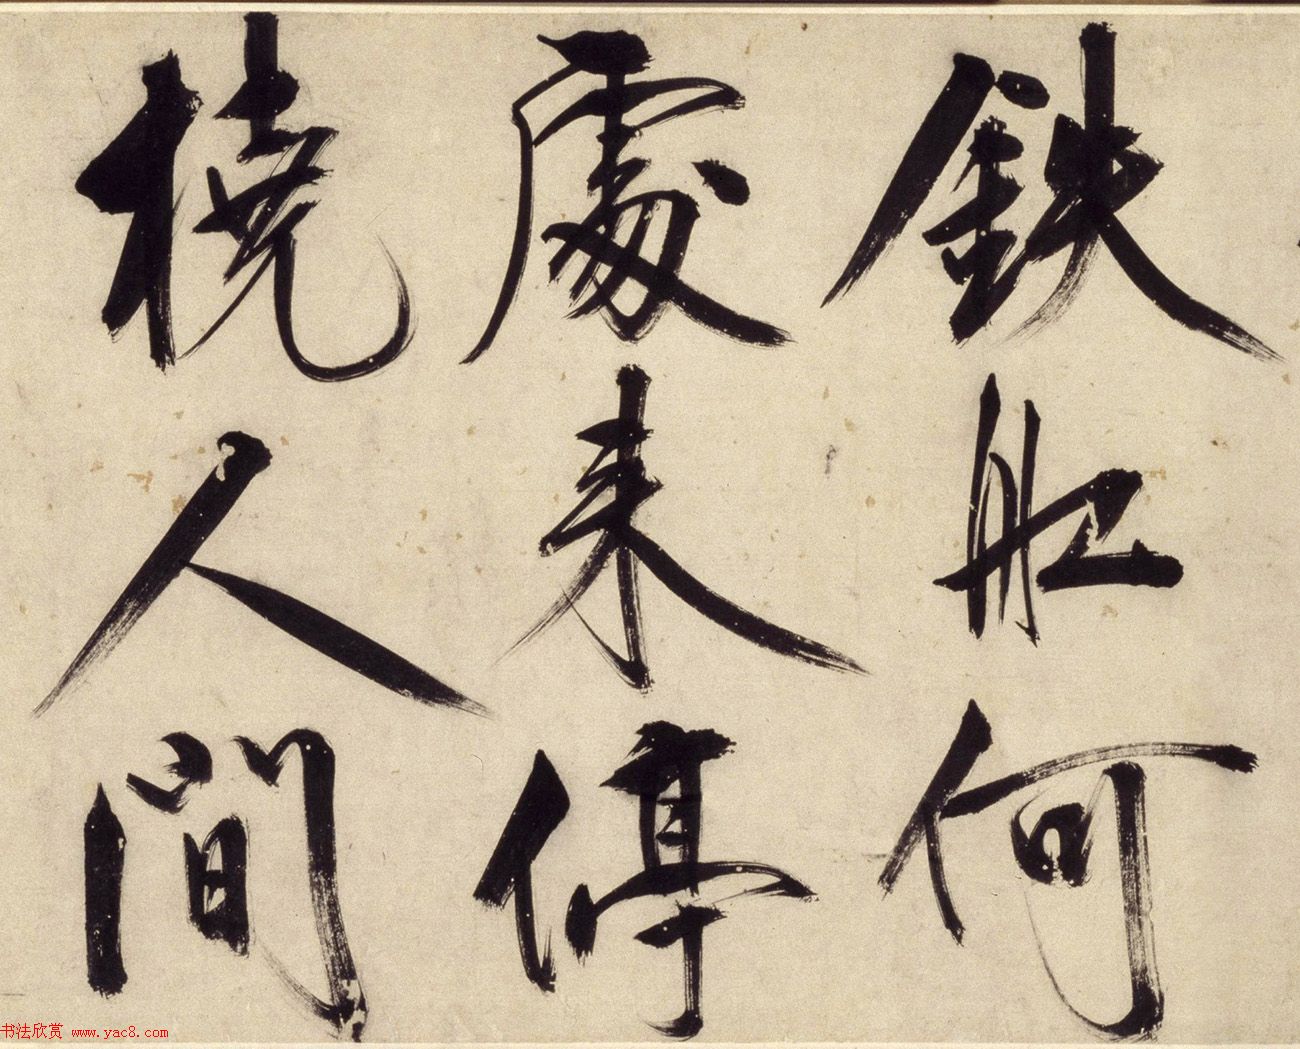 鉄舡何
處来停
橈人間
书法欣赏 www.yac8.com